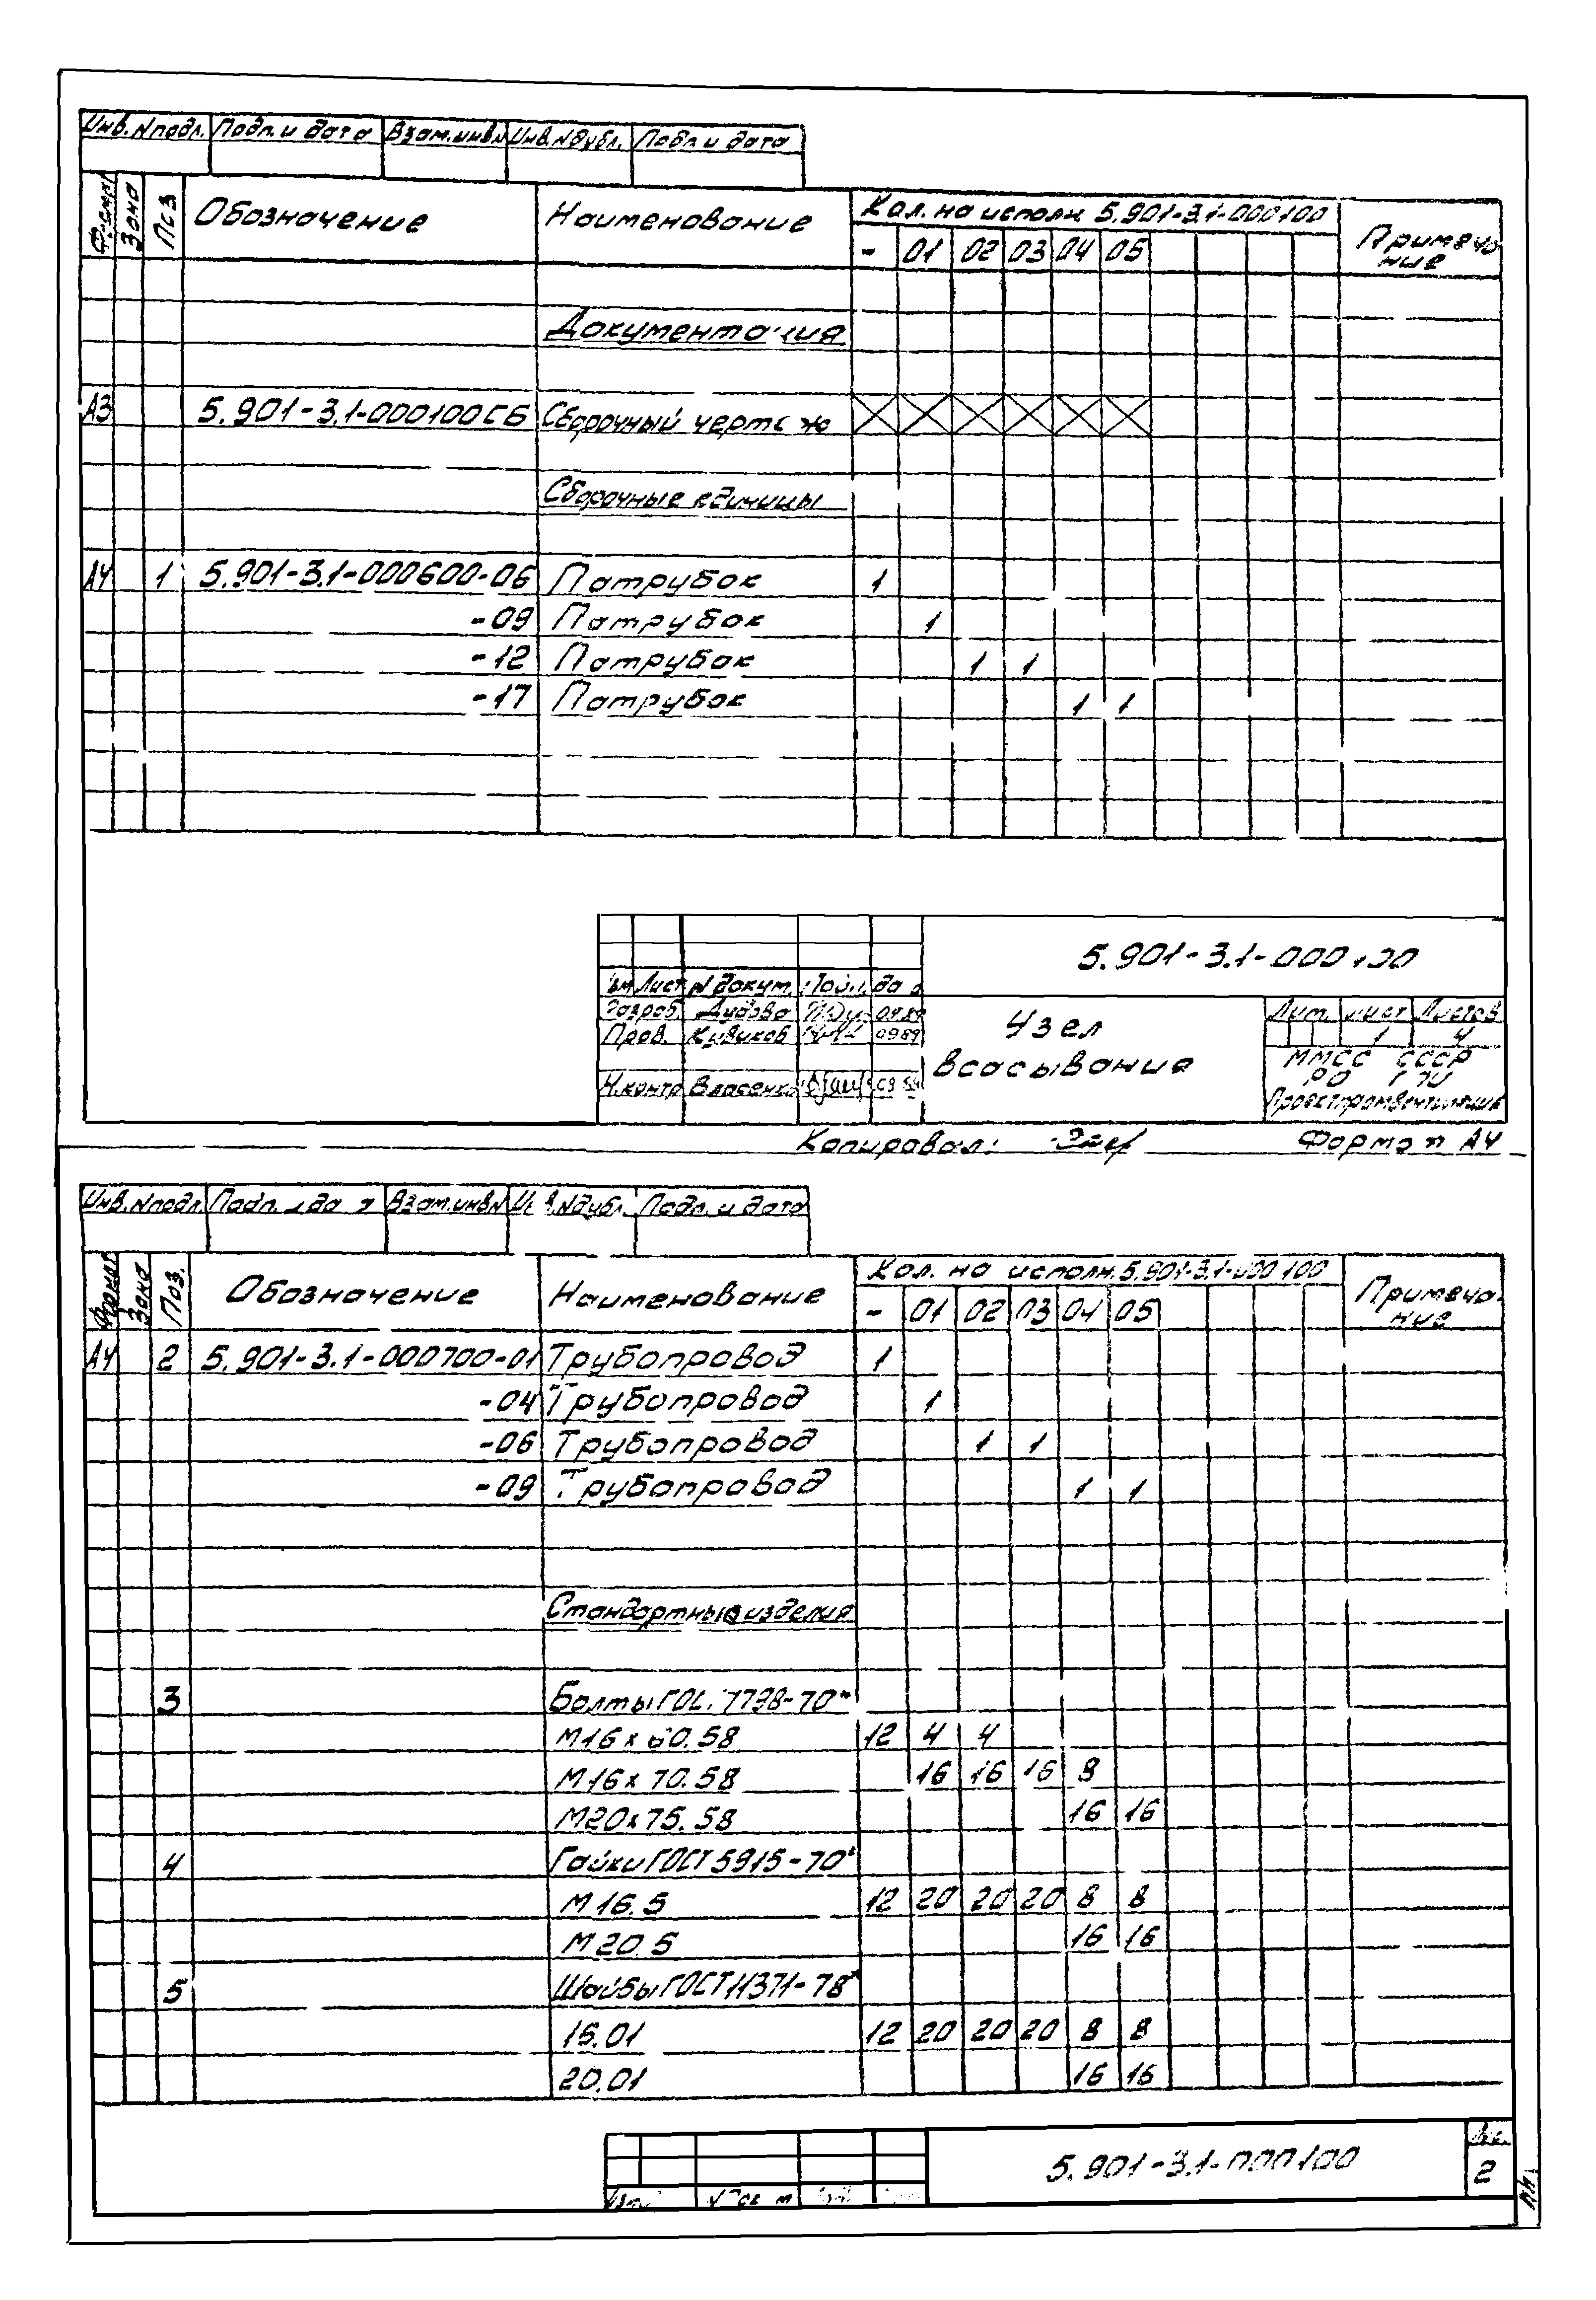 Инв.Nподл. Подп. и дата Взам.инвN Инв.Nдубл. Подп. и дата
Формат Зона Поз. Обозначение Наименование Кол. на исполн. 5.901-3.1-000100 Примеча
ние
- 01 02 03 04 05
Документация
А3 5.901-3.1-000100СБ Сборочный чертеж
Сборочные единицы
А4 1 5.901-3.1-000600-06 Патрубок 1
-09 Патрубок 1
-12 Патрубок 1 1
-17 Патрубок 1 1
5.901-3.1-000100
Изм Лист N докум. Подп. дата
Разраб. Дудова 09.89
Пров. Кивиков 09.89
Н.контр Власенко 09.89
Узел
всасывания
Лит. Лист Листов
1 4
ММСС СССР
ГПИ
Проектпромвентиляция
Копировал: Формат А4
Инв.Nподл. Подп. и дата Взам.инвN Инв.Nдубл. Подп. и дата
Формат Зона Поз. Обозначение Наименование Кол. на исполн. 5.901-3.1-000100 Примеча-
ние
- 01 02 03 04 05
А4 2 5.901-3.1-000700-01 Трубопровод 1
-04 Трубопровод 1
-06 Трубопровод 1 1
-09 Трубопровод 1 1
Стандартные изделия
3 Болты ГОСТ 7798-70*
М16х60.58 12 4 4
М16х70.58 16 16 16 8
М20х75.58 16 16
4 Гайки ГОСТ 5915-70*
М16.5 12 20 20 20 8 8
М20.5 16 16
5 Шайбы ГОСТ 11371-78*
16.01 12 20 20 20 8 8
20.01 16 16
5.901-3.1-000100
Лис.
2